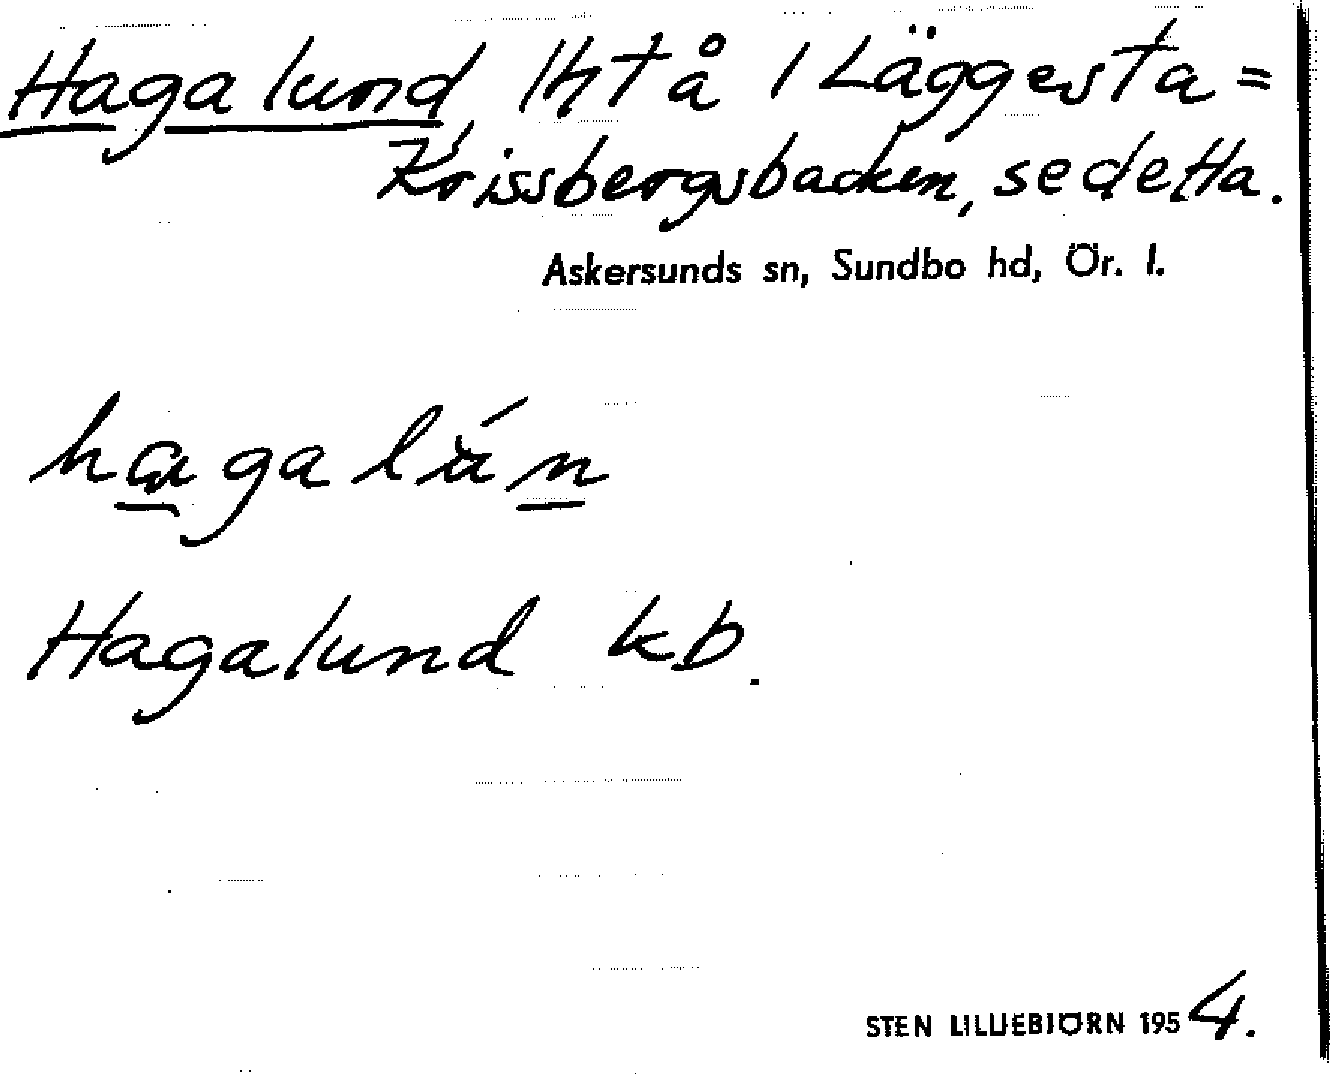 Hagalund, lht å 1 Läggesta =
Krissbergsbacken, se detta.
Askersunds sn, Sundbo hd, Ör. l.
hagalún
Hagalund kb.
STEN LILLIEBJÖRN 1954.